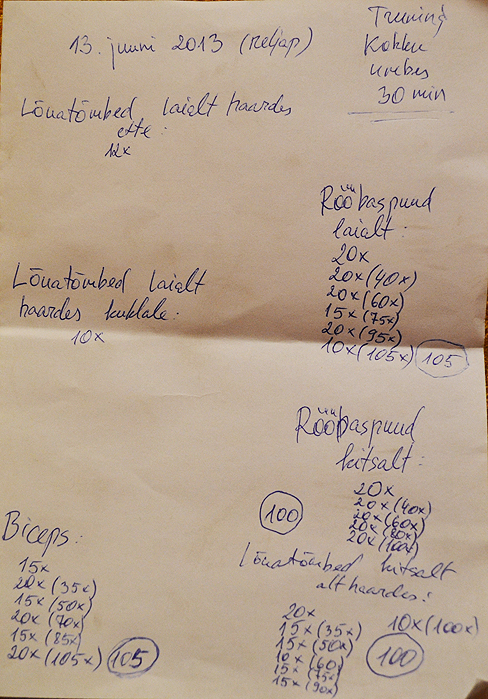 13. juuni 2013 (neljap)
Treening
Kokku
umbes
30 min
Lõuatõmbed laialt haardes
ette:
12x
Rööbaspuud
laialt:
20x
20x (40x)
20x (60x)
15x (75x)
20x (95x)
10x (105x) 105
Lõuatõmbed laialt
haardes kuklale:
10x
Rööbaspuud
kitsalt:
20x
20x (40x)
20x (60x)
20x (80x)
20x (100x)
100
Biceps:
15x
20x (35x)
15x (50x)
20x (70x)
15x (85x)
20x (105x) 105
Lõuatõmbed kitsalt
alt haardes:
20x
15x (35x)
15x (50x)
10x (60)
15x (75x)
15x (90x)
10x (100x)
100